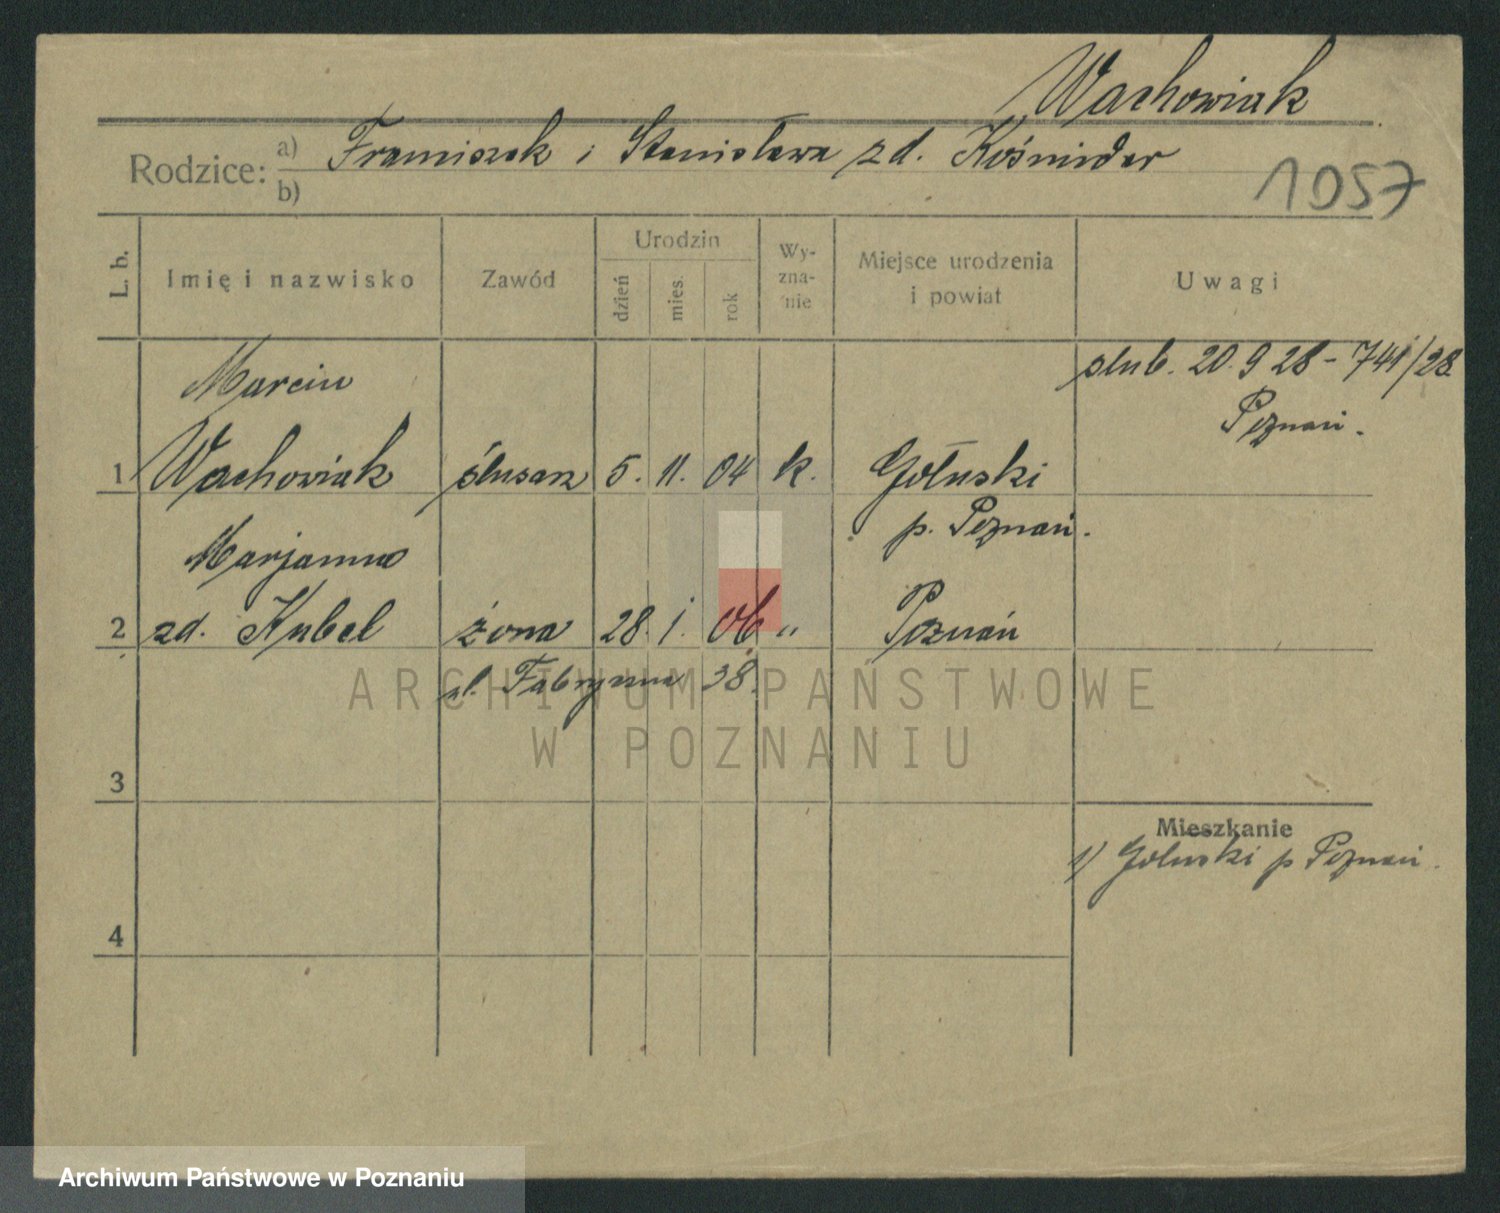 Wachowiak
Rodzice: a) Franciszek i Stanisława zd. Kośmider
b)
1057
L. b.
Imię i nazwisko
Zawód
Urodzin
dzień
mies.
rok
Wy-
zna-
nie
Miejsce urodzenia
i powiat
Uwagi
Marcin
slub. 20.9 28 - 741/28
Poznań.
1 Wachowiak ślusarz 5. 11. 04 k. Gołuski
p. Poznań.
Marjanna
2 zd. Kubel żona 28. 1. 06 " Poznań
ul. Fabryczna 38.
ARCHIWUM PAŃSTWOWE
W POZNANIU
3
Mieszkanie
1) Gołuski p Poznań.
4
Archiwum Państwowe w Poznaniu